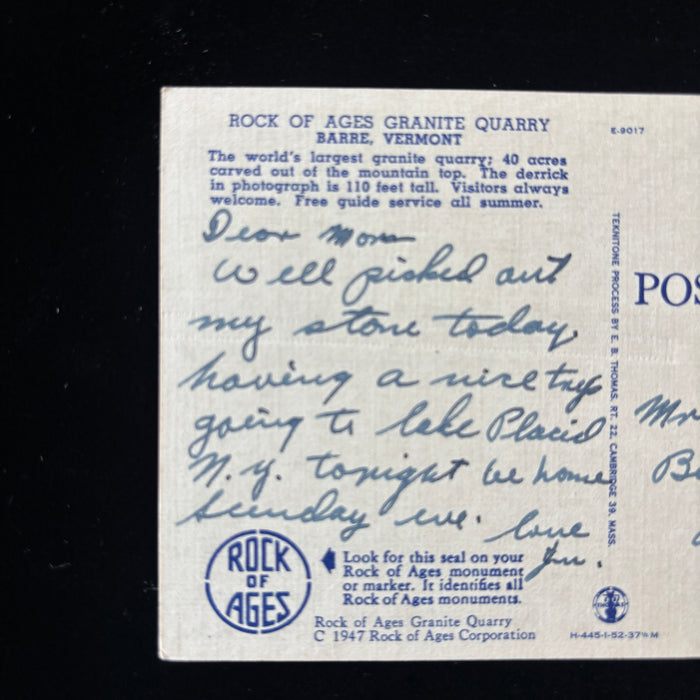 ROCK OF AGES GRANITE QUARRY
BARRE, VERMONT
The world's largest granite quarry; 40 acres
carved out of the mountain top. The derrick
in photograph is 110 feet tall. Visitors always
welcome. Free guide service all summer.
Dear Mom
Well picked out
my stone today,
having a nice trip
going to lake Placid
N.Y. tonight be home
Sunday eve. love
ROCK
OF
AGES
Look for this seal on your
Rock of Ages monument
or marker. It identifies all
Rock of Ages monuments.
Rock of Ages Granite Quarry
C 1947 Rock of Ages Corporation
E-9017
TEKNITONE PROCESS BY E. B. THOMAS, RT. 22, CAMBRIDGE 39, MASS.
POS
H-445-1-52-37½M